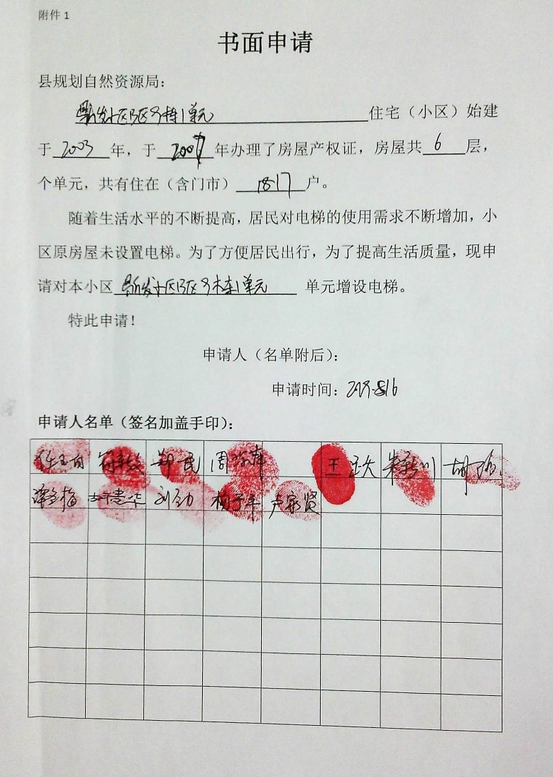 附件1
书面申请
县规划自然资源局：
住宅（小区）始建
于2003年，于2007年办理了房屋产权证，房屋共6层，
个单元，共有住在（含门市）户。
随着生活水平的不断提高，居民对电梯的使用需求不断增加，小
区原房屋未设置电梯。为了方便居民出行，为了提高生活质量，现申
请对本小区 单元增设电梯。
特此申请！
申请人（名单附后）：
申请时间：
申请人名单（签名加盖手印）：
郑民 胡
刘劲 卢家贤